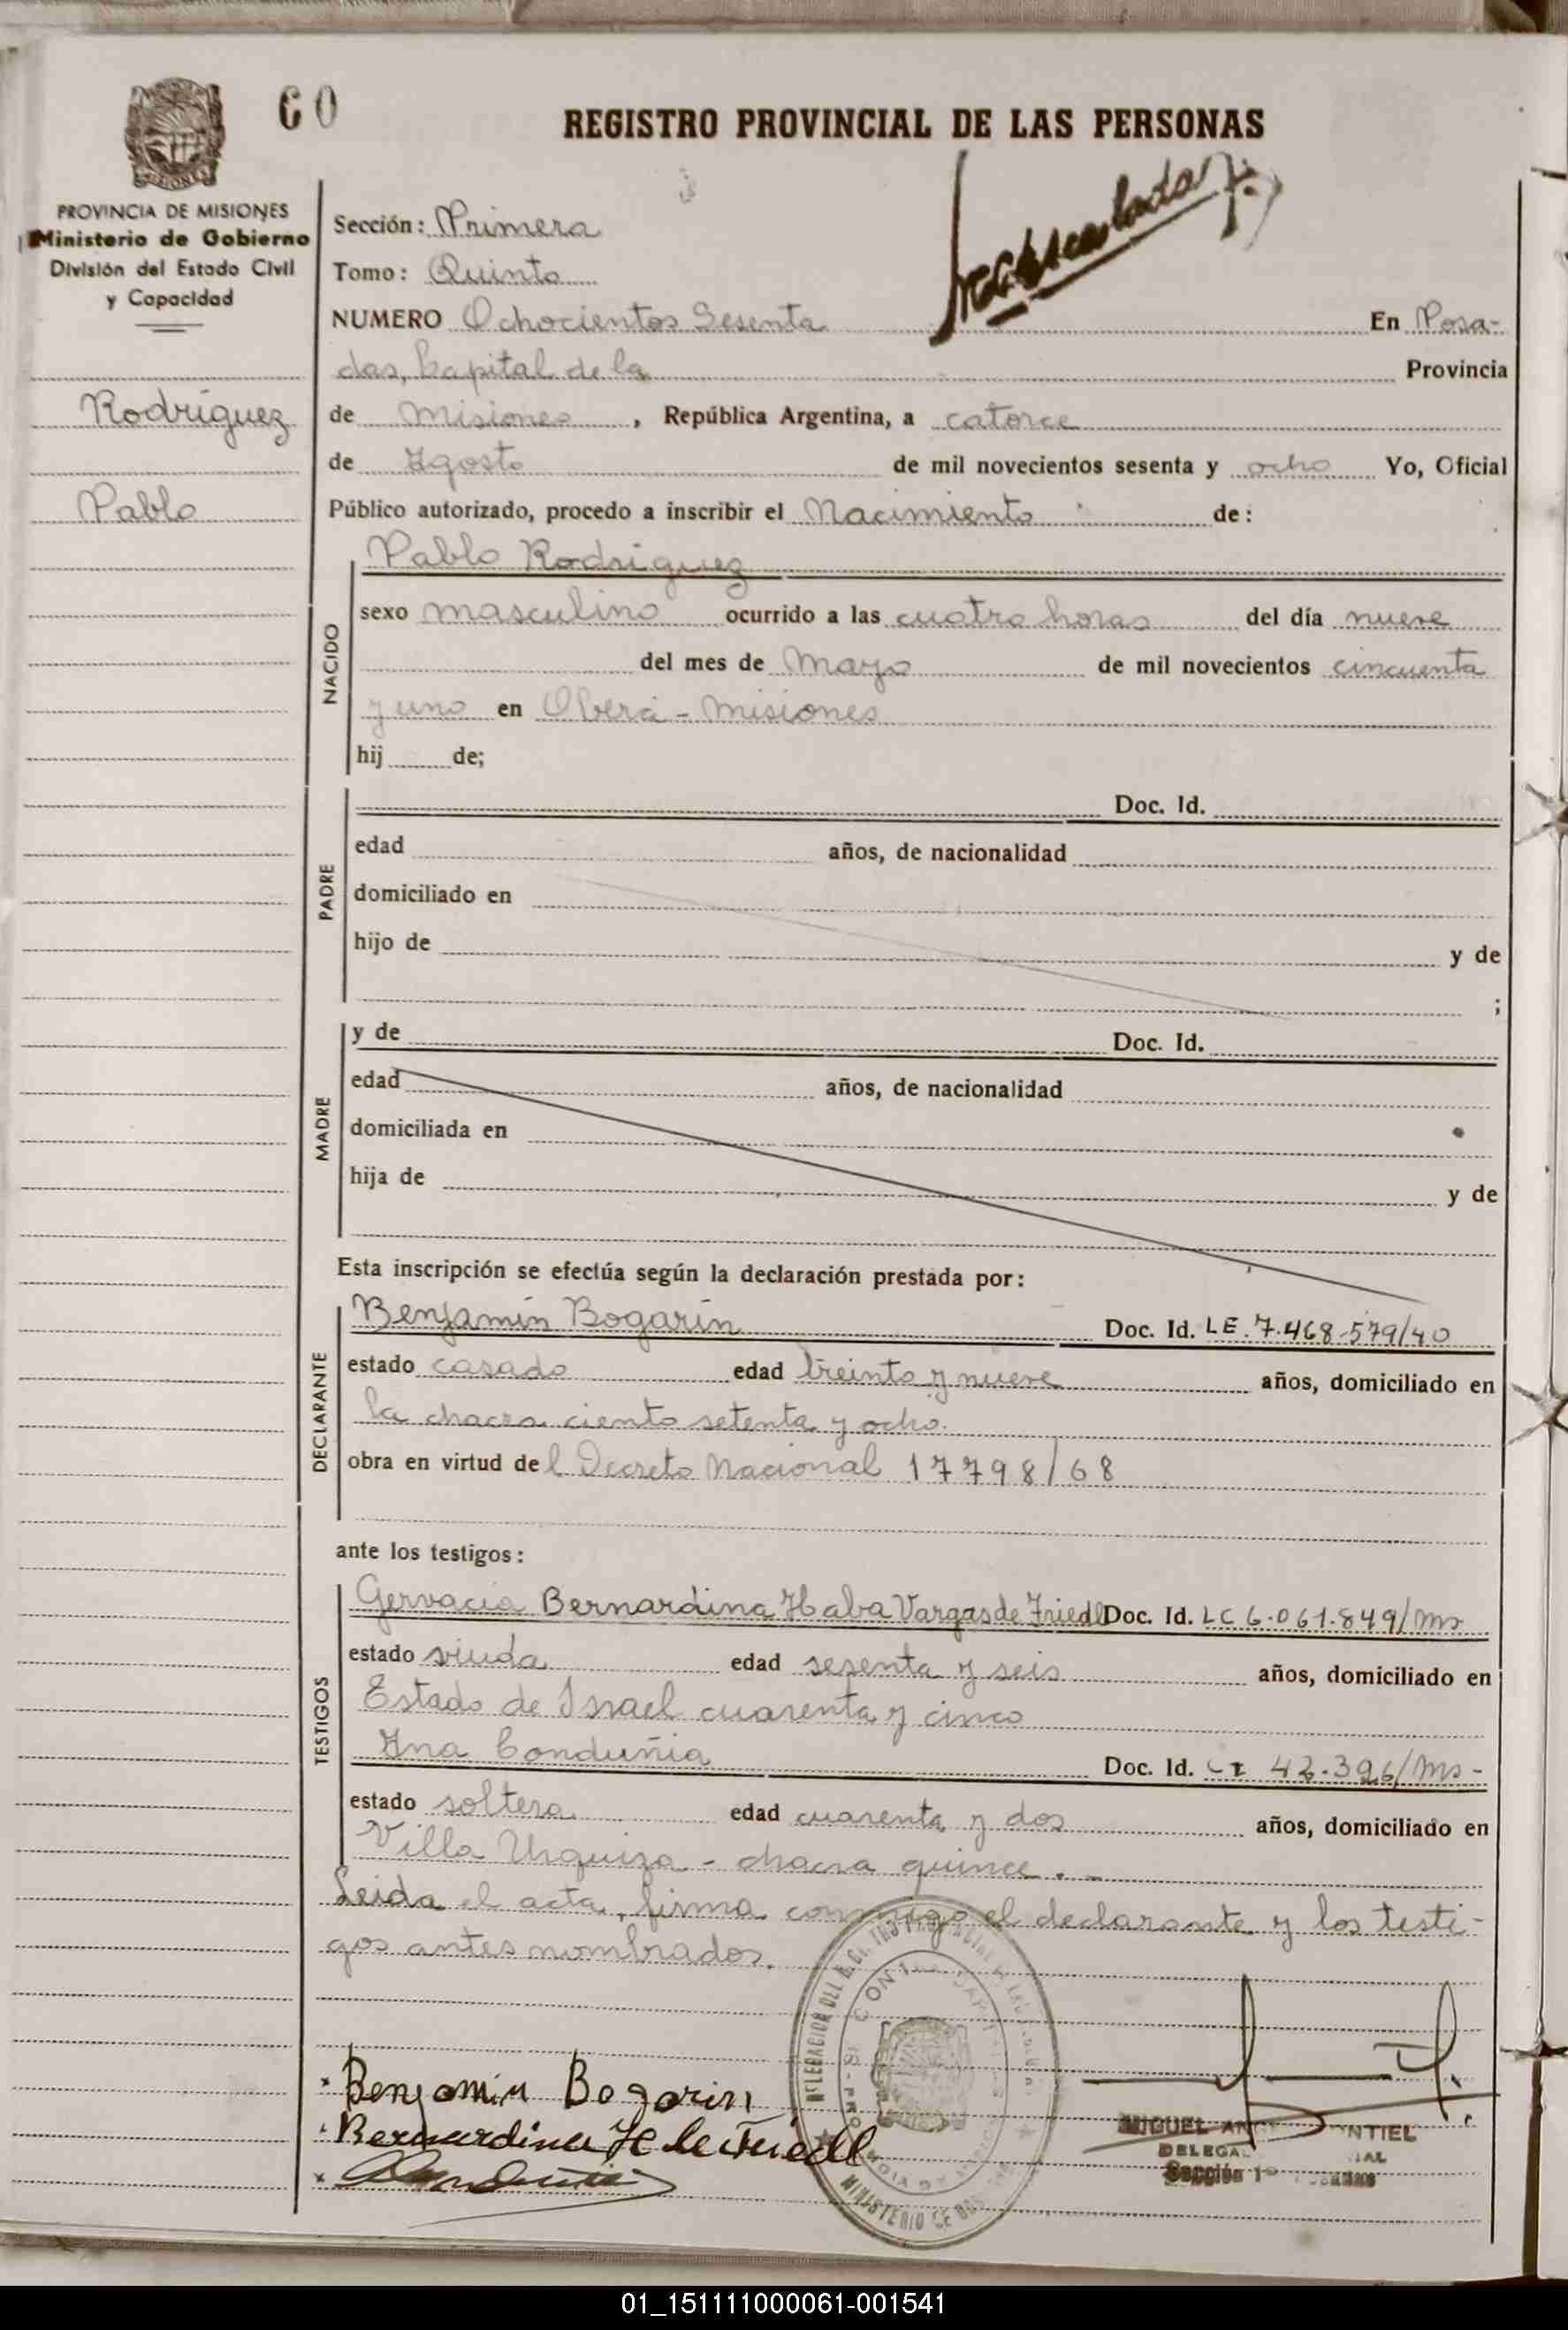 60
REGISTRO PROVINCIAL DE LAS PERSONAS
PROVINCIA DE MISIONES
Ministerio de Gobierno
División del Estado Civil
y Capacidad
Rodríguez
Pablo
Sección: Primera
Tomo: Quinto
NUMERO Ochocientos Sesenta En Posa-
das, Capital de la Provincia
de Misiones, República Argentina, a catorce
de Agosto de mil novecientos sesenta y ocho Yo, Oficial
Público autorizado, procedo a inscribir el Nacimiento de:
NACIDO
Pablo Rodriguez
sexo masculino ocurrido a las cuatro horas del día nueve
del mes de Mayo de mil novecientos cincuenta
y uno en Oberá - Misiones
hij de;
PADRE
Doc. Id.
edad años, de nacionalidad
domiciliado en
hijo de y de
;
MADRE
y de Doc. Id.
edad años, de nacionalidad
domiciliada en
hija de y de
Esta inscripción se efectúa según la declaración prestada por:
DECLARANTE
Benjamín Bogarín Doc. Id. LE.7.468-579/40
estado casado edad treinta y nueve años, domiciliado en
la chacra ciento setenta y ocho.
obra en virtud del Decreto Nacional 17798/68
ante los testigos:
TESTIGOS
Gervacia Bernardina Haba Vargas de Friedl Doc. Id. LC 6.061.849/Ms
estado viuda edad sesenta y seis años, domiciliado en
Estado de Israel cuarenta y cinco
Ana Conduñia Doc. Id. CI 42.396/Ms-
estado soltera edad cuarenta y dos años, domiciliado en
Villa Urquiza - chacra quince.-
Leida el acta, firma conmigo el declarante y los testi-
gos antes nombrados.
Benjamin Bogarin
Bernardina H de Friedl
MIGUEL
DELEGA
Sección 1ª
MINISTERIO DE
01_151111000061-001541